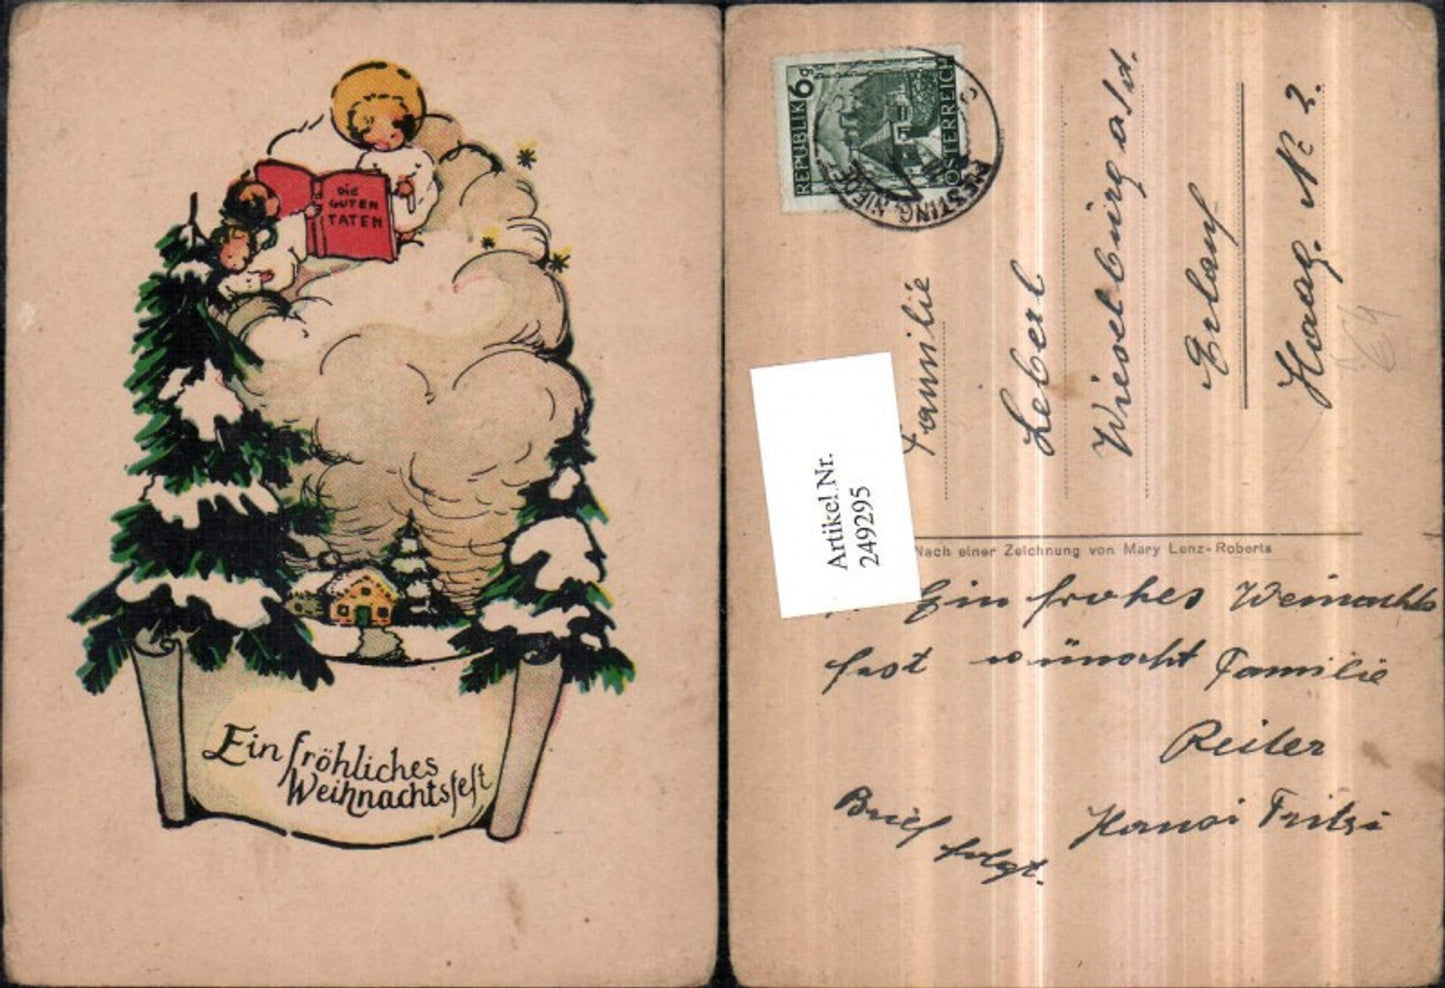 Die
GUTEN
TATEN
Ein fröhliches
Weihnachtsfest
REPUBLIK 6g
ÖSTERREICH
PIESTING, NIEDER
Familie
Leberl
Wieselburg a/d.
Erlauf
Haag. No 2.
64
Artikel Nr.
249295
Nach einer Zeichnung von Mary Lenz-Roberts
Ein frohes Weinachts
fest wünscht Familie
Reiter
Hansi Fritzi
Brief
folgt.